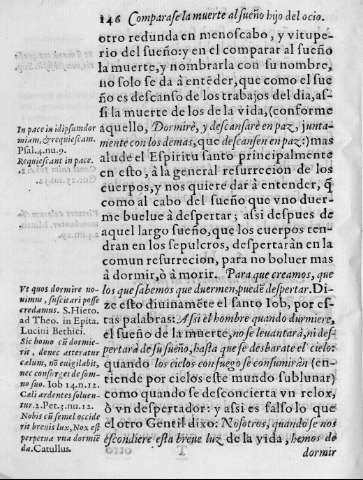 146 Comparase la muerte al sueño hijo del ocio.
otro redunda en menoscabo, y vitupe-
rio del sueño: y en el comparar al sueño
la muerte, y nombrarla con su nombre,
no solo se da à entẽder, que como el sue
ño es descanso de los trabajos del dia, as-
si la muerte de los de la vida, (conforme
aquello, Dormirè, y descansarè en paz, junta-
mente con los demas, que descansen en paz:) mas
alude el Espiritu santo principalmente
en esto, à la general resurrecion de los
cuerpos, y nos quiere dar à entender, q̃
como al cabo del sueño que vno duer-
me buelue à despertar; assi despues de
aquel largo sueño, que los cuerpos ten-
dran en los sepulcros, despertaràn en la
comun resurrecion, para no boluer mas
à dormir, ò à morir. Para que creamos, que
los que sabemos que duermen, puedẽ despertar. Di-
ze esto diuinamẽte el santo Iob, por es-
tas palabras: Assi el hombre quando durmiere,
el sueño de la muerte, no se leuantarà, ni des-
pertarà de su sueño, hasta que se desbarate el cielo:
quando los ciclos con fuego se consumiràn (en-
tiende por cielos este mundo sublunar)
como quando se desconcierta vn relox,
ò vn despertador: y assi es falso lo que
el otro Gentil dixo: Nosotros, quando se nos
escondiere esta breue luz de la vida, hemos de
dormir
In pace in idipsum dor
miam, & requiescam.
Psal. 4. nu. 9.
Requiescant in pace.
Vt quos dormire no-
uimus, suscitari posse
credamus. S. Hiero.
ad Theo. in Epita.
Lucini Bethici.
Sic homo cũ dormie-
rit, donec atteratur
cælum, nõ euigilabit,
nec consurget de som-
no suo. Iob 14. n. 12.
Cæli ardentes soluen-
tur. 2. Pet. 3. nu. 12.
Nobis cũ semel occide
rit breuis lux, Nox est
perpetua vna dormiẽ
da. Catullus.